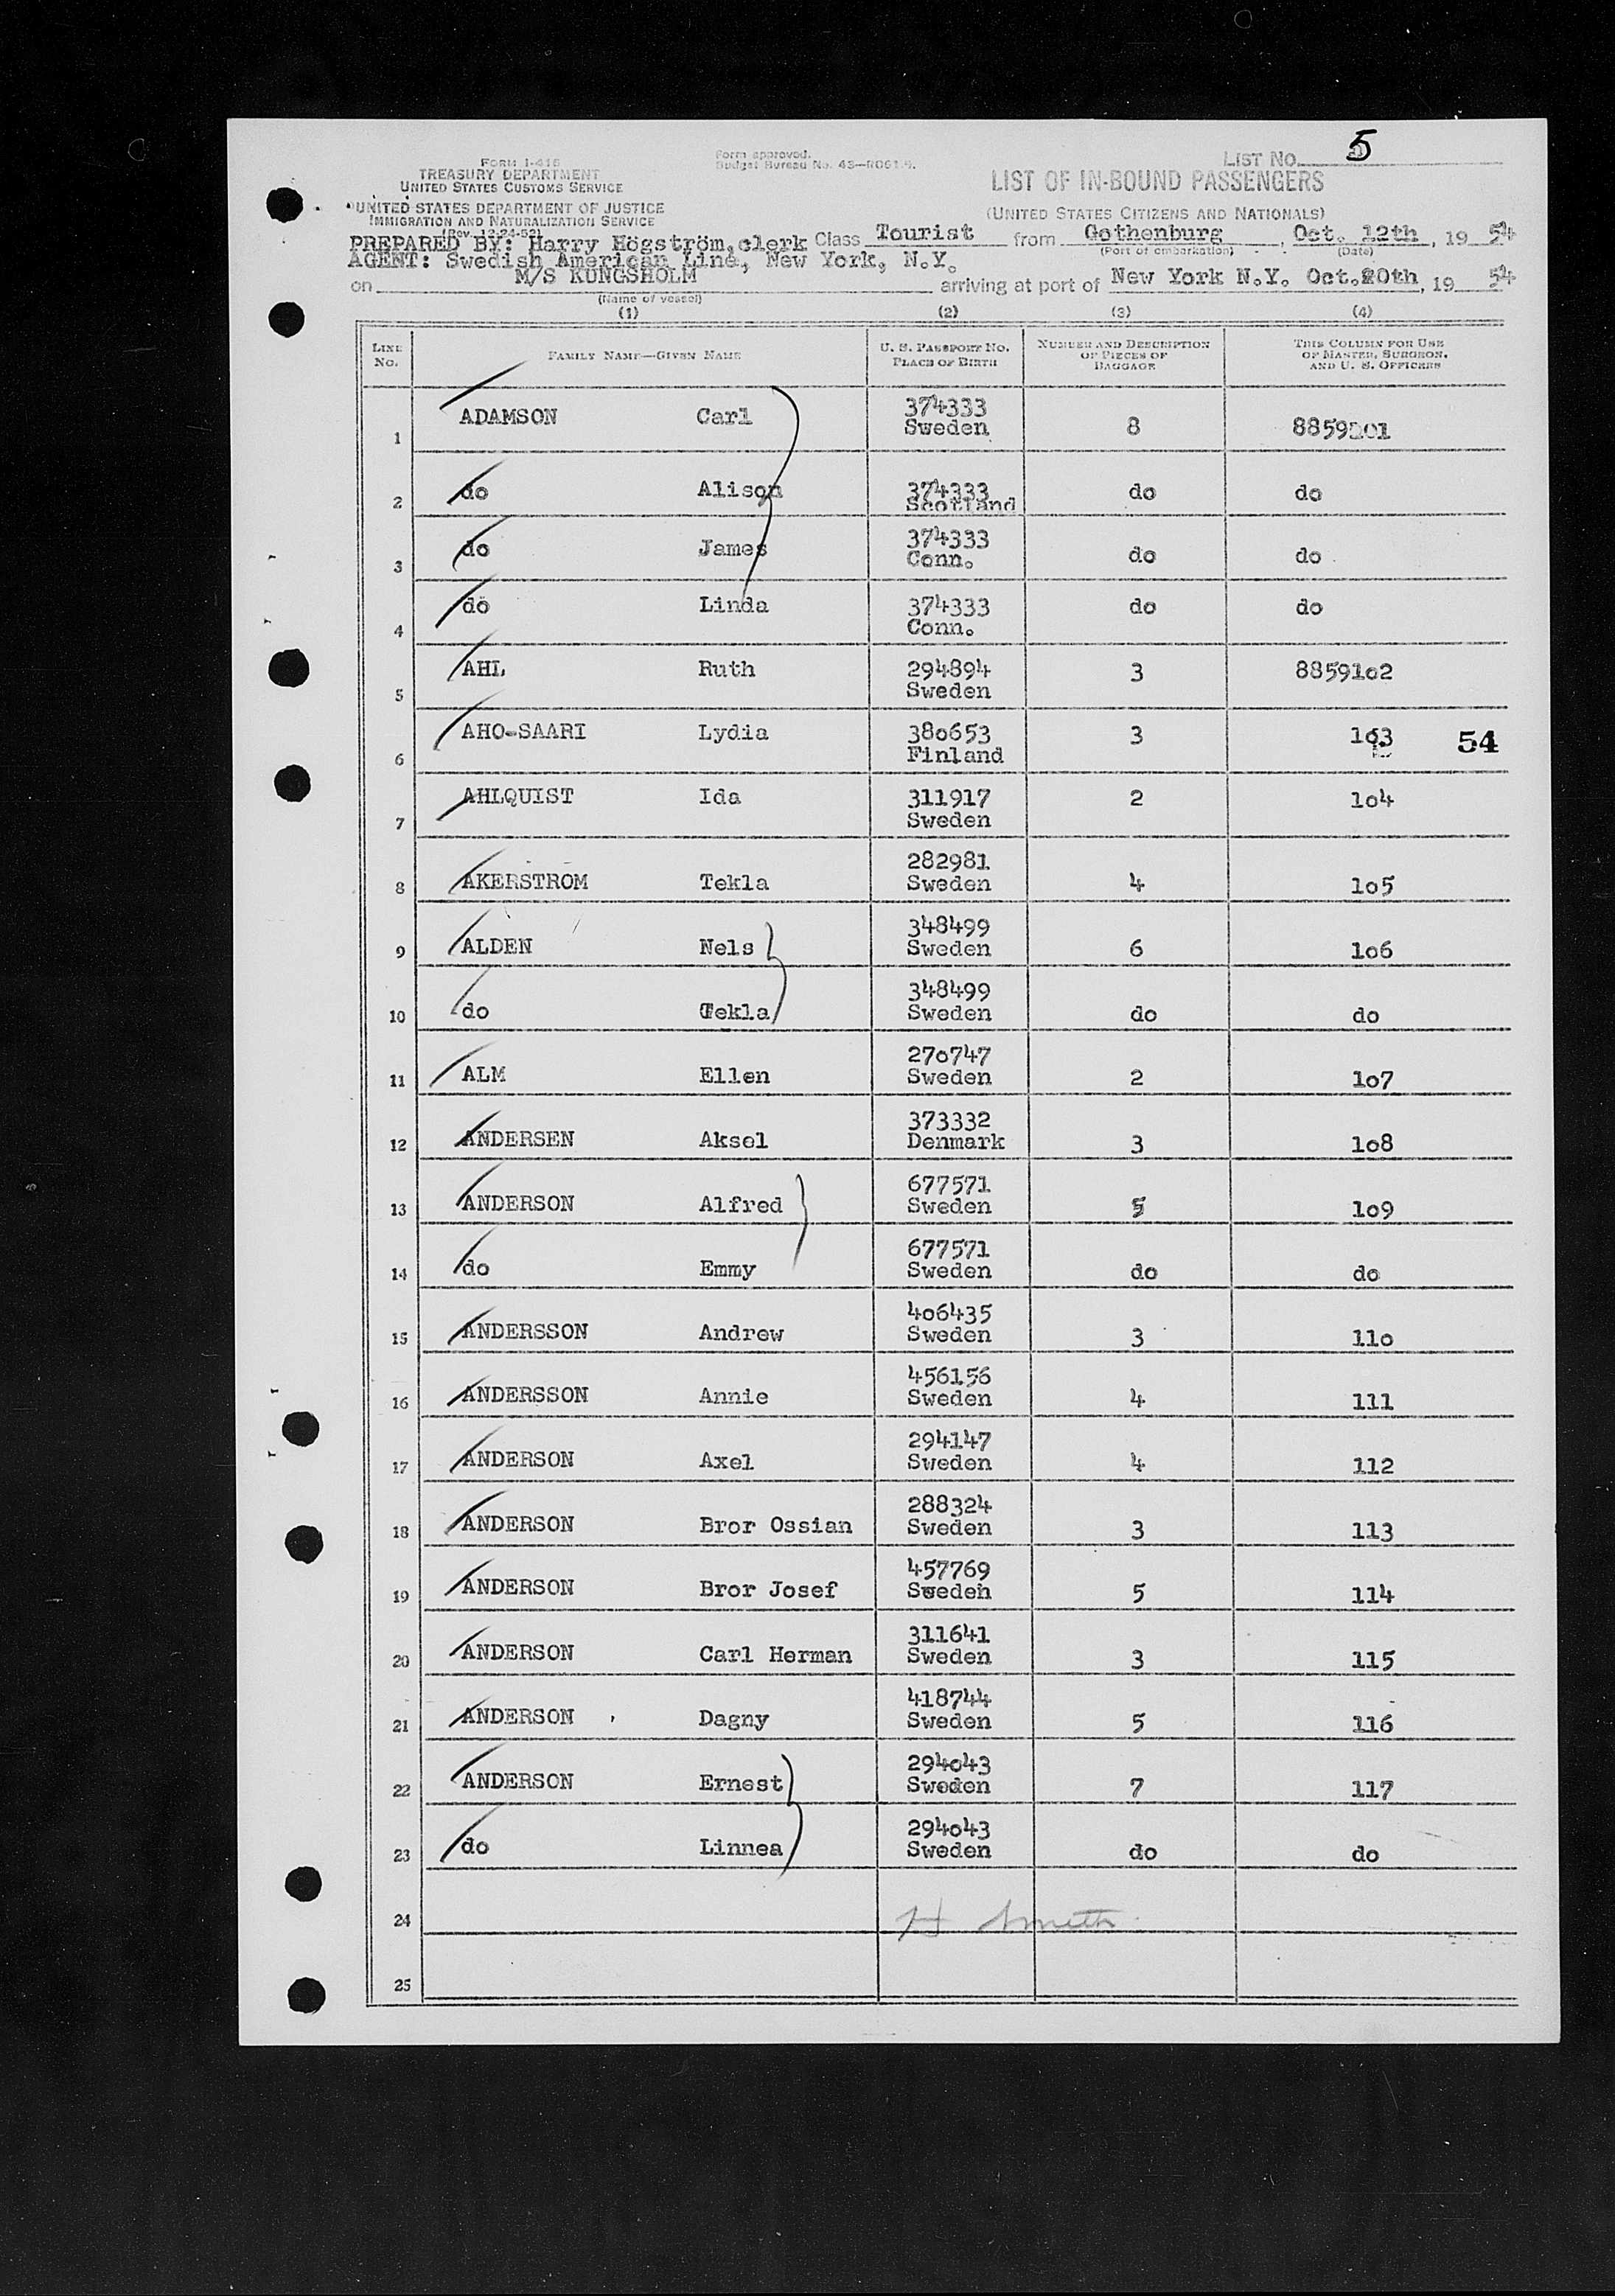 LIST NO. 5
FORM I-418
TREASURY DEPARTMENT
UNITED STATES CUSTOMS SERVICE
Form approved.
Budget Bureau No. 43-R061.4.
LIST OF IN-BOUND PASSENGERS
UNITED STATES DEPARTMENT OF JUSTICE
IMMIGRATION AND NATURALIZATION SERVICE
(Rev. 12-24-52)
(UNITED STATES CITIZENS AND NATIONALS)
PREPARED BY: Harry Högström, clerk Class Tourist from Gothenburg, Oct. 12th, 1954
(Port of embarkation) (Date)
AGENT: Swedish American Line, New York, N.Y.
on M/S KUNGSHOLM arriving at port of New York N.Y. Oct.20th, 1954
(Name of vessel)
(1) (2) (3) (4)
LINE NO. FAMILY NAME—GIVEN NAME U. S. PASSPORT NO. PLACE OF BIRTH NUMBER AND DESCRIPTION OF PIECES OF BAGGAGE THIS COLUMN FOR USE OF MASTER, SURGEON, AND U. S. OFFICERS
1 ADAMSON Carl 374333 Sweden 8 8859101
2 do Alison 374333 Scotland do do
3 do James 374333 Conn. do do
4 do Linda 374333 Conn. do do
5 AHL Ruth 294894 Sweden 3 8859102
6 AHO-SAARI Lydia 380653 Finland 3 103 54
7 AHLQUIST Ida 311917 Sweden 2 104
8 AKERSTROM Tekla 282981 Sweden 4 105
9 ALDEN Nels 348499 Sweden 6 106
10 do Tekla 348499 Sweden do do
11 ALM Ellen 270747 Sweden 2 107
12 ANDERSEN Aksel 373332 Denmark 3 108
13 ANDERSON Alfred 677571 Sweden 5 109
14 do Emmy 677571 Sweden do do
15 ANDERSSON Andrew 406435 Sweden 3 110
16 ANDERSSON Annie 456156 Sweden 4 111
17 ANDERSON Axel 294147 Sweden 4 112
18 ANDERSON Bror Ossian 288324 Sweden 3 113
19 ANDERSON Bror Josef 457769 Sweden 5 114
20 ANDERSON Carl Herman 311641 Sweden 3 115
21 ANDERSON Dagny 418744 Sweden 5 116
22 ANDERSON Ernest 294043 Sweden 7 117
23 do Linnea 294043 Sweden do do
24 H Smith
25